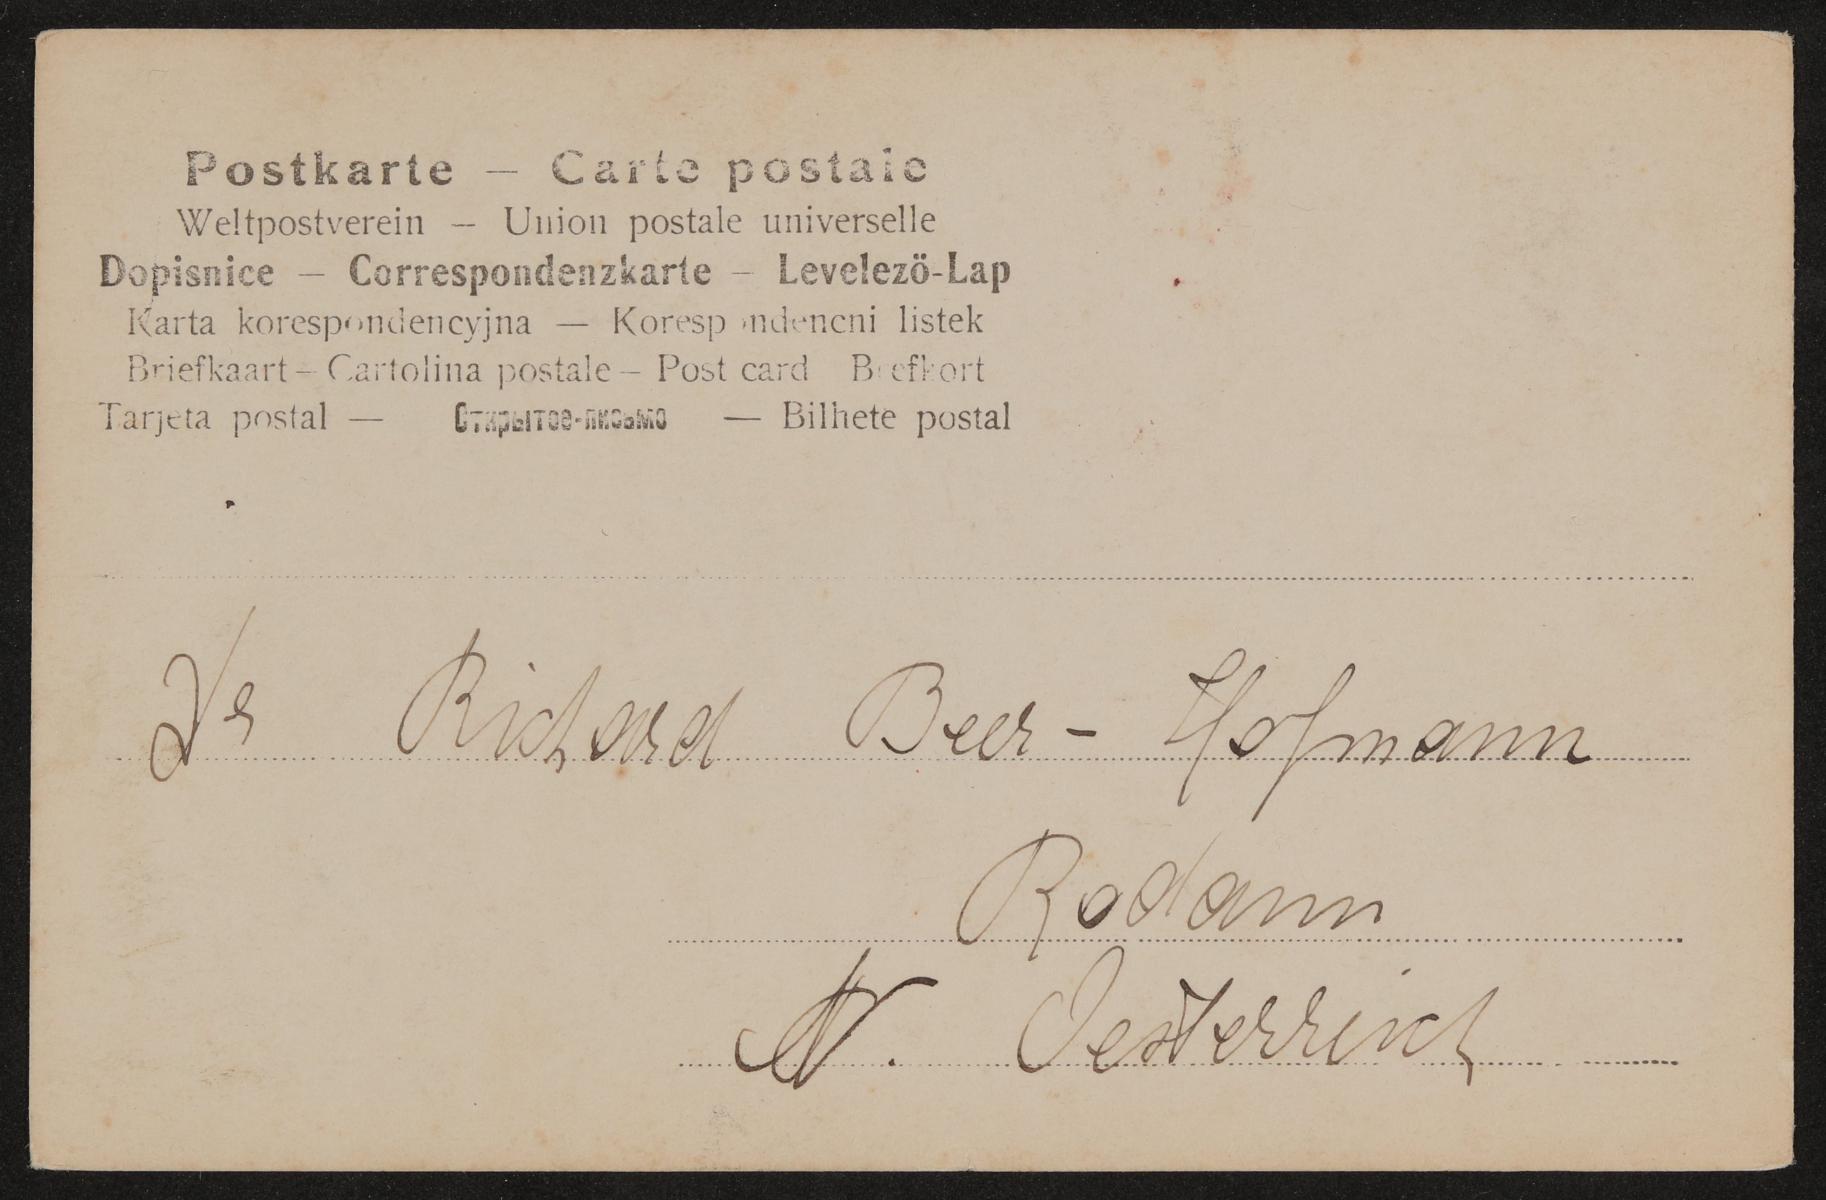 Postkarte — Carte postale
Weltpostverein — Union postale universelle
Dopisnice — Correspondenzkarte — Levelező-Lap
Karta korespondencyjna — Korespondencni listek
Briefkaart — Cartolina postale — Post card Brefkort
Tarjeta postal — Открытое-письмо — Bilhete postal
Dr Richard Beer-Hofmann
Rodann
N. Oesterreich